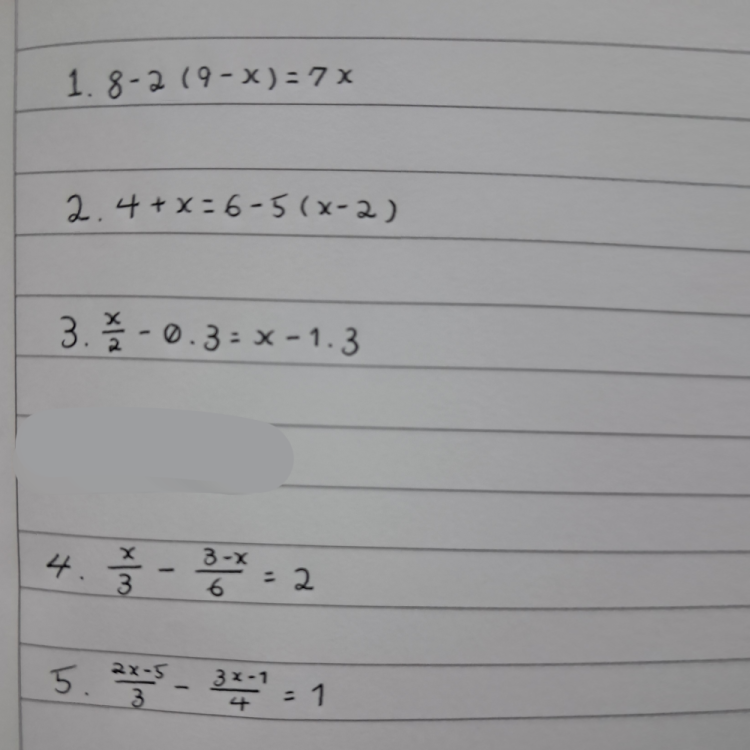 1. 8-2(9-x)=7x
2. 4+x=6-5(x-2)
3. x/2 - 0.3 = x-1.3
4. x/3 - (3-x)/6 = 2
5. (2x-5)/3 - (3x-1)/4 = 1